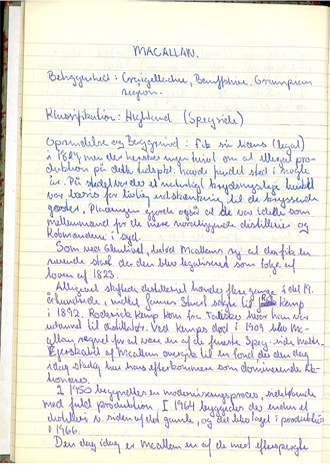 MACALLAN.
Beliggenhed: Craigellachie, Banffshire, Grampian
region.
Klassifikation: Highland (Speyside)
Oprindelse og Baggrund: Fik sin licens (legal)
i 1824, men der hersker ingen tvivl om at illegal pro-
duktion på dette tidspkt. havde fundet sted i nogle
år. På stedet var der et naturligt krydsningssted hvilket
var basis for livlig
gårde. Placeringen gjorde også at de var ideelle som
mellemmand for de mere nordligere distillerier og
Købmændene i syd.
Som med Glenlivet, betød Macallans ry at der fik en
den blev legaliseret som følge af
loven af 1823.
Alligevel skiftede distilleriet hænder flere gange i det 19.
århundrede, indtil James Stuart solgte til Rod. Kemp
i 1892. Roderick Kemp kom fra Talisker hvor han var
Ved Kemps død i 1909 blev Ma-
allan regnet for at være en af de fineste Spey-side malts.
Ejerskabet af Macallan overgik til en fond der den dag
idag stadig har hans efterkommere som dominerende ak-
tionærer.
I 1950 begyndte en moderniseringsproces,
med fuld produktion. I 1964 byggedes der endnu et
distilleri v. siden af det gamle, og det blev taget i produktion
i 1966.
Den dag idag er Macallan en af de mest efterspurgte